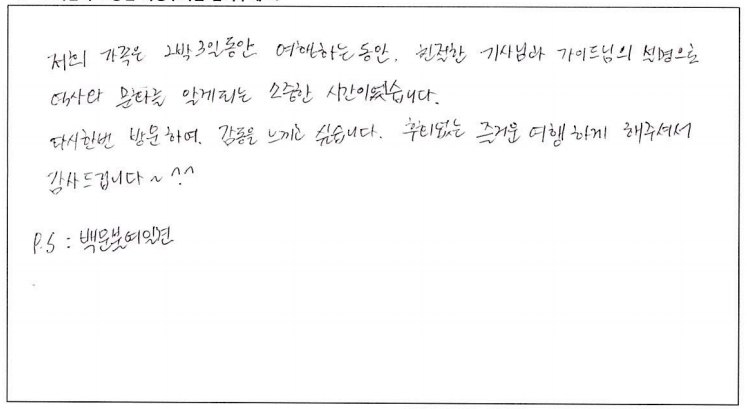 저희 가족은 2박3일동안 여행하는동안, 친절한 기사님과 가이드님의 설명으로
역사와 문화를 알게되는 소중한 시간이였습니다.
다시한번 방문하여, 감동을 느끼고 싶습니다. 후회없는 즐거운 여행하게 해주셔서
감사드립니다~ ^^
P.S : 백문불여일견